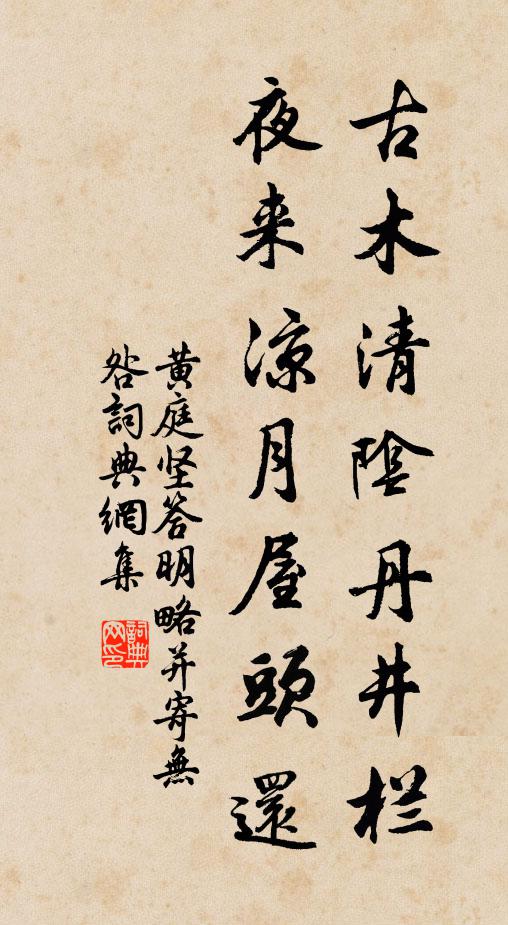 古木清陰丹井栏
夜来凉月屋頭還
黄庭坚答明略并寄無
咎詞典網集
詞典網印